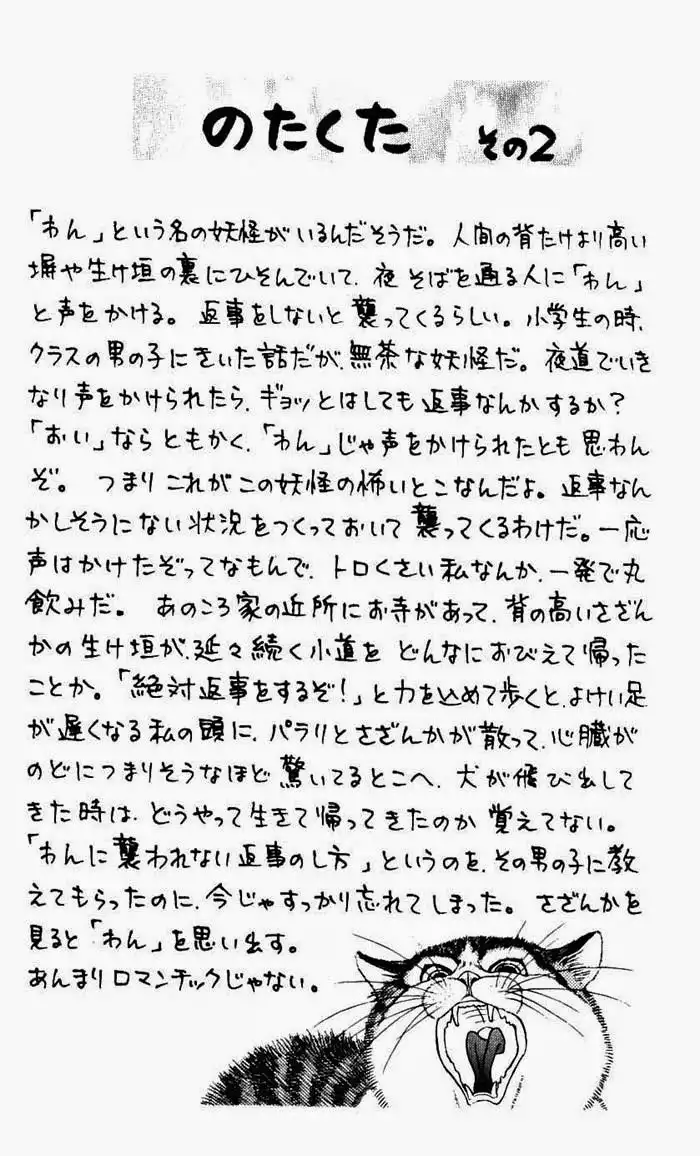 のたくた その2
「わん」という名の妖怪がいるんだそうだ。人間の背たけより高い
塀や生け垣の裏にひそんでいて、夜そばを通る人に「わん」
と声をかける。返事をしないと襲ってくるらしい。小学生の時、
クラスの男の子にきいた話だが、無茶な妖怪だ。夜道でいき
なり声をかけられたら、ギョッとはしても返事なんかするか？
「おい」ならともかく、「わん」じゃ声をかけられたとも思わん
ぞ。つまりこれがこの妖怪の怖いとこなんだよ。返事なん
かしそうにない状況をつくっておいて襲ってくるわけだ。一応
声はかけたぞってなもんで、トロくさい私なんか、一発で丸
飲みだ。あのころ家の近所にお寺があって、背の高いさざん
かの生け垣が、延々続く小道をどんなにおびえて帰った
ことか。「絶対返事をするぞ！」と力を込めて歩くと、よけい足
が遅くなる私の頭に、パラリとさざんかが散って、心臓が
のどにつまりそうなほど驚いてるとこへ、犬が飛び出して
きた時は、どうやって生きて帰ってきたのか覚えてない。
「わんに襲われない返事のし方」というのを、その男の子に教
えてもらったのに、今じゃすっかり忘れてしまった。さざんかを
見ると「わん」を思い出す。
あんまりロマンチックじゃない。